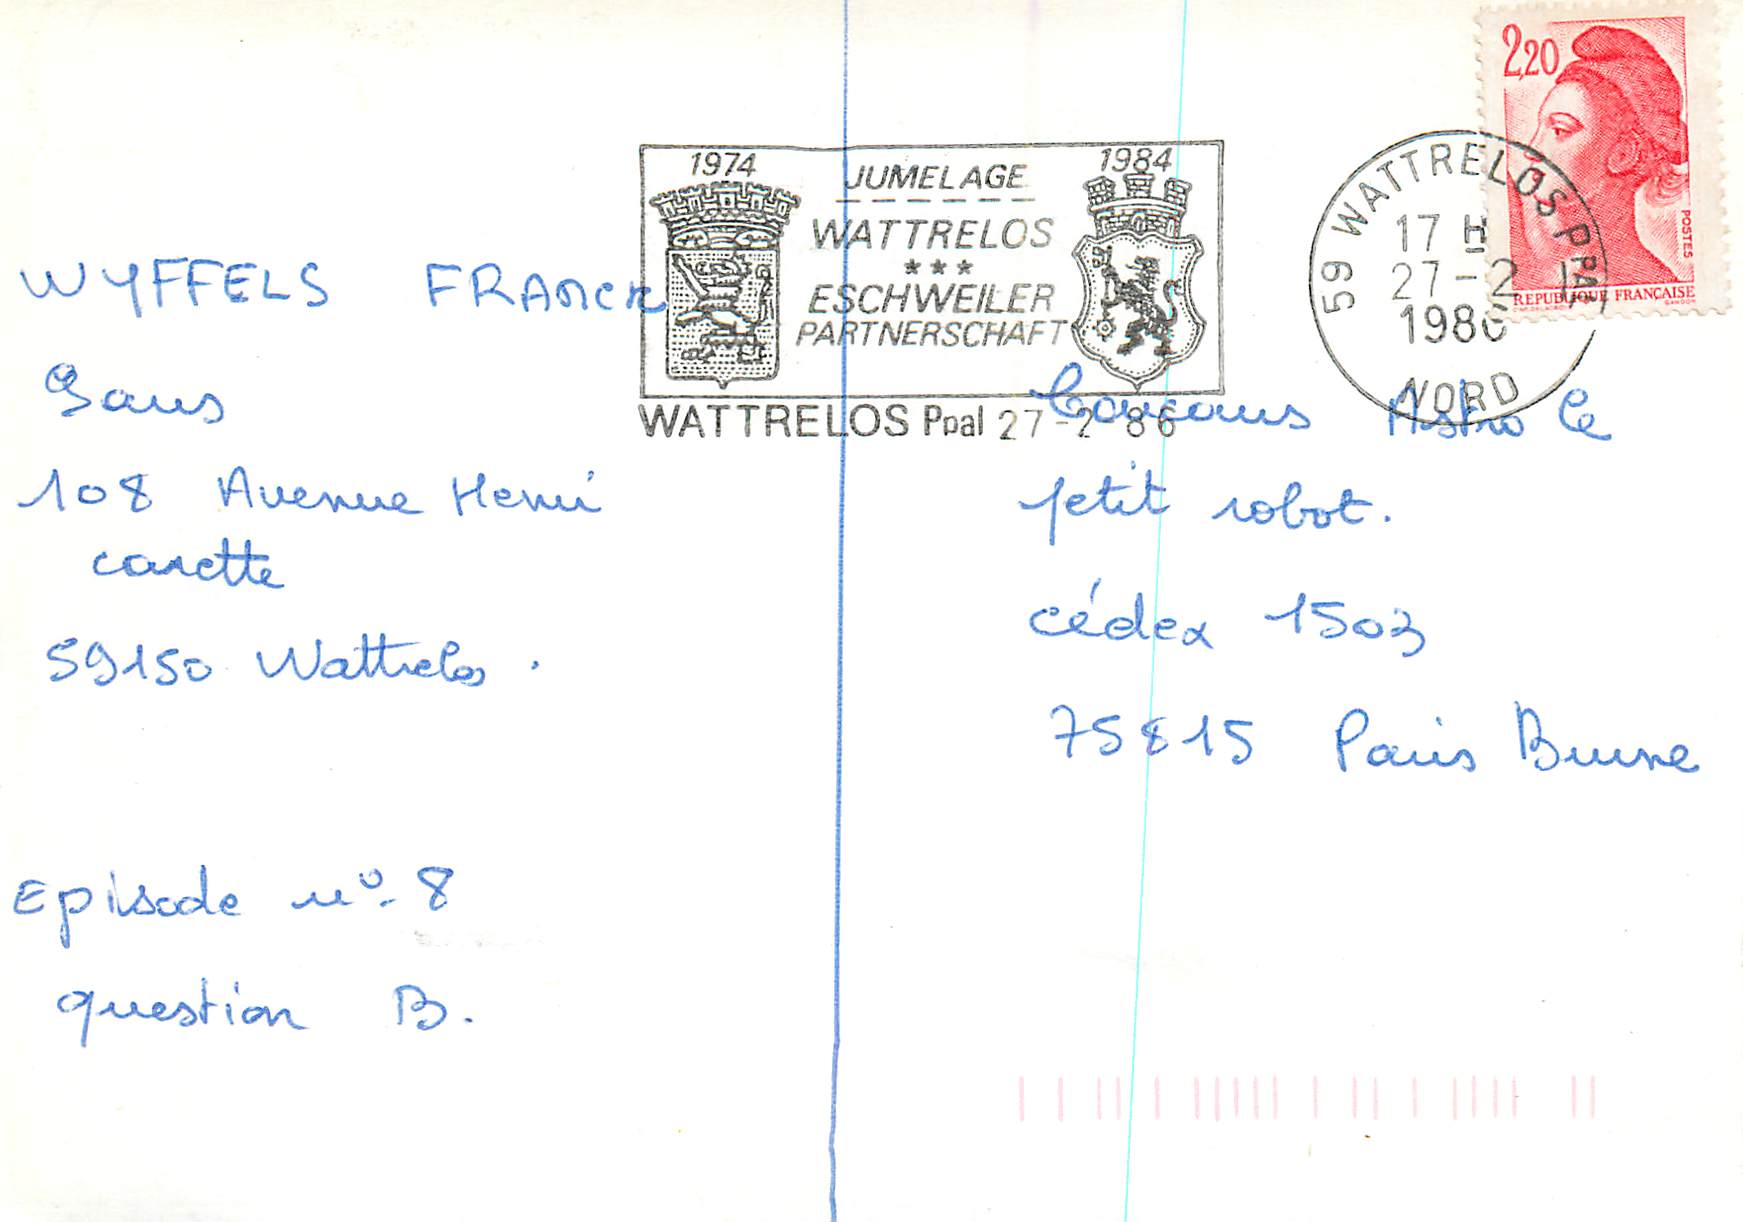 WYFFELS FRANCK
9ans
108 Avenue Henri
carette
59150 Wattrelos.
Episode n° 8
question B.
1974
JUMELAGE
WATTRELOS
***
ESCHWEILER
PARTNERSCHAFT
1984
WATTRELOS Ppal 27-2 86
59 WATTRELOS PPAL
17 H
27-2
1986
NORD
2,20
POSTES
REPUBLIQUE FRANÇAISE
Concours Astro le
petit robot.
cédex 1503
75815 Paris Brune